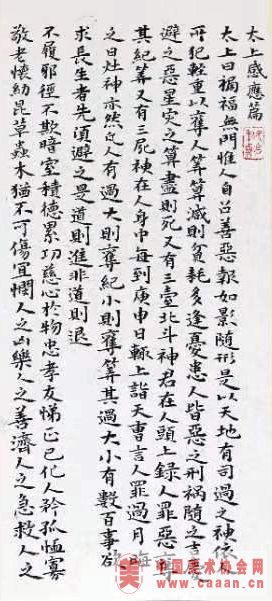 太上感應篇
太上曰禍福無門惟人自召善惡報如影隨形是以天地有司過之神依人
所犯輕重以奪人算算減則貧耗多逢憂患人皆惡之刑禍隨之吉慶
避之惡星灾之算盡則死又有三臺北斗神君在人頭上錄人罪惡
其紀算又有三尸神在人身中每到庚申日輒上詣天曹言人罪過月
之日灶神亦然凡人有過大則奪紀小則奪算其過大小有數百事欲
求長生者先須避之是道則進非道則退
不履邪徑不欺暗室積德累功慈心於物忠孝友悌正己化人矜孤恤寡
敬老懷幼昆草蟲木猶不可傷宜憫人之凶樂人之善濟人之急救人之
中国美术协会网
www.caaan.cn